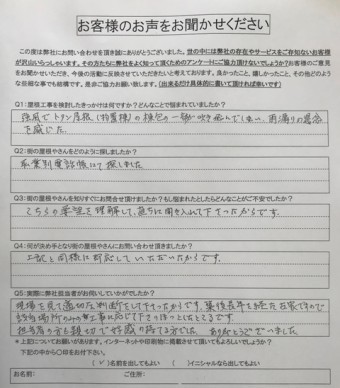 お客様のお声をお聞かせください
この度は弊社にお問い合わせを頂き誠にありがとうございました。世の中には弊社の存在やサービスをご存知ないお客様
が沢山いらっしゃいます。その方たちに弊社をよく知って頂くためのアンケートにご協力頂けないでしょうか?お客様のご意見
をお聞かせいただき、今後の活動に反映させていただきたいと考えております。良かったこと、嬉しかったこと、その他どのよう
な些細な事でも結構です。是非ご協力お願い致します。(出来るだけ具体的に書いて頂ければ幸いです)
Q1:屋根工事を検討したきっかけは何ですか?どんなことで悩まれていましたか?
強風でトタン屋根(物置様)の棟包の一部が吹き飛んでしまい、雨漏りの懸念
を感じた。
Q2:街の屋根やさんをどのように探しましたか?
職業別電話帳にて探しました
Q3:街の屋根やさんを知りすぐにお問合せ頂けましたか?もし悩まれたとしたらどんなことがご不安でしたか?
こちらの要望を理解して、直ちに聞き入れて下さったからです。
Q4:何が決め手となり街の屋根やさんにお問い合わせ頂きましたか?
上記と同様に対応していただいたからです。
Q5:実際に弊社担当者がお伺いしていかがでしたか?
現場を見て適切な判断をして下さったからです。築後長年を経た古家ですので
該当場所のみの工事に応じて下さってほっとしたところです。
担当者の方も親切で好感の持てる方でした。ありがとうございました。
*上記についてお願いがあります。インターネットや印刷物に掲載させて頂いてもよろしいでしょうか?
下記の中から〇印をお付け下さい。
(✓)名前を出してもよい ( )イニシャルなら出してもよい
お名前: ご住所: